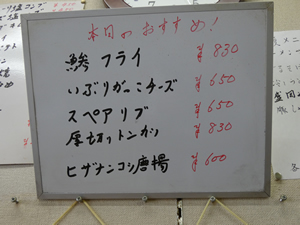 本日のおすすめ!
鯵フライ ¥830
いぶりがっこチーズ ¥650
スペアリブ ¥650
厚切りトンカツ ¥830
ヒザナンコツ唐揚 ¥600